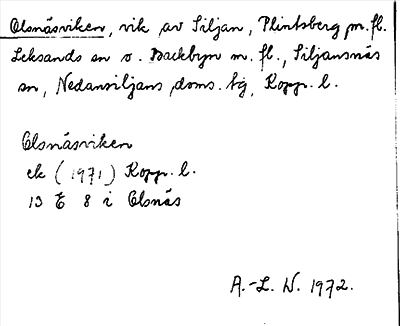 Olsnäsviken, vik av Siljan, Plintsberg m. fl.
Leksands sn o. Backbyn m. fl., Siljansnäs
sn, Nedansiljans doms. tg, Kopp. l.
Olsnäsviken
ek (1971) Kopp. l.
13 E 8 i Olsnäs
A.-L. W. 1972.